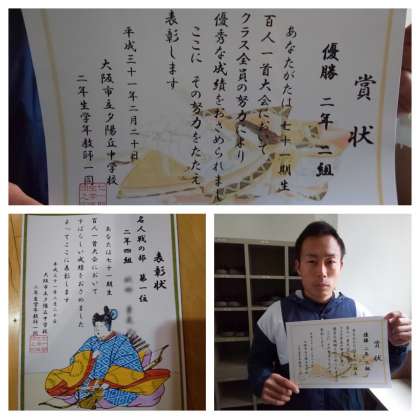 賞状
優勝 二年 二組
あなたがたは七十一期生
百人一首大会において
クラス全員の努力により
優秀な成績をおさめられまし
ここに その努力をたたえ
表彰します
平成三十一年二月二十日
大阪市立夕陽丘中学校
二年生学年教師一同
表彰状
名人戦の部 第一位
二年四組
あなたは七十一期生
百人一首大会において
すばらしい成績をおさめました
よってここに表彰します
平成三十一年二月二十日
大阪市立夕陽丘中学校
二年生学年教師一同
賞状
優勝 二年 二組